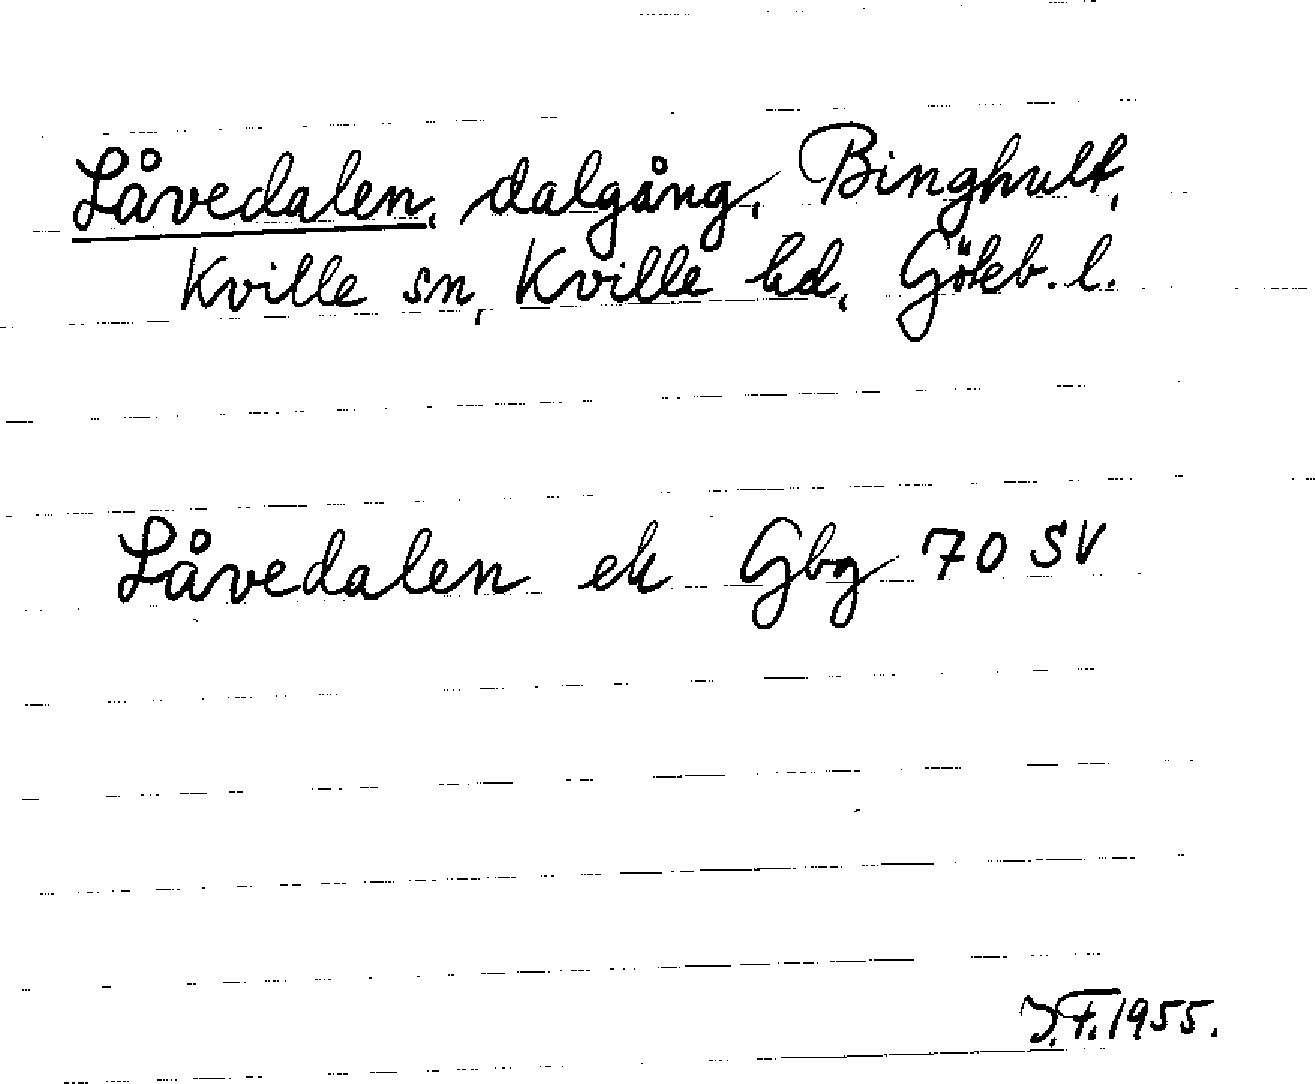 Låvedalen, dalgång, Binghult,
Kville sn, Kville hd, Göteb. l.
Låvedalen ek Gbg 70 SV
J.F. 1955.